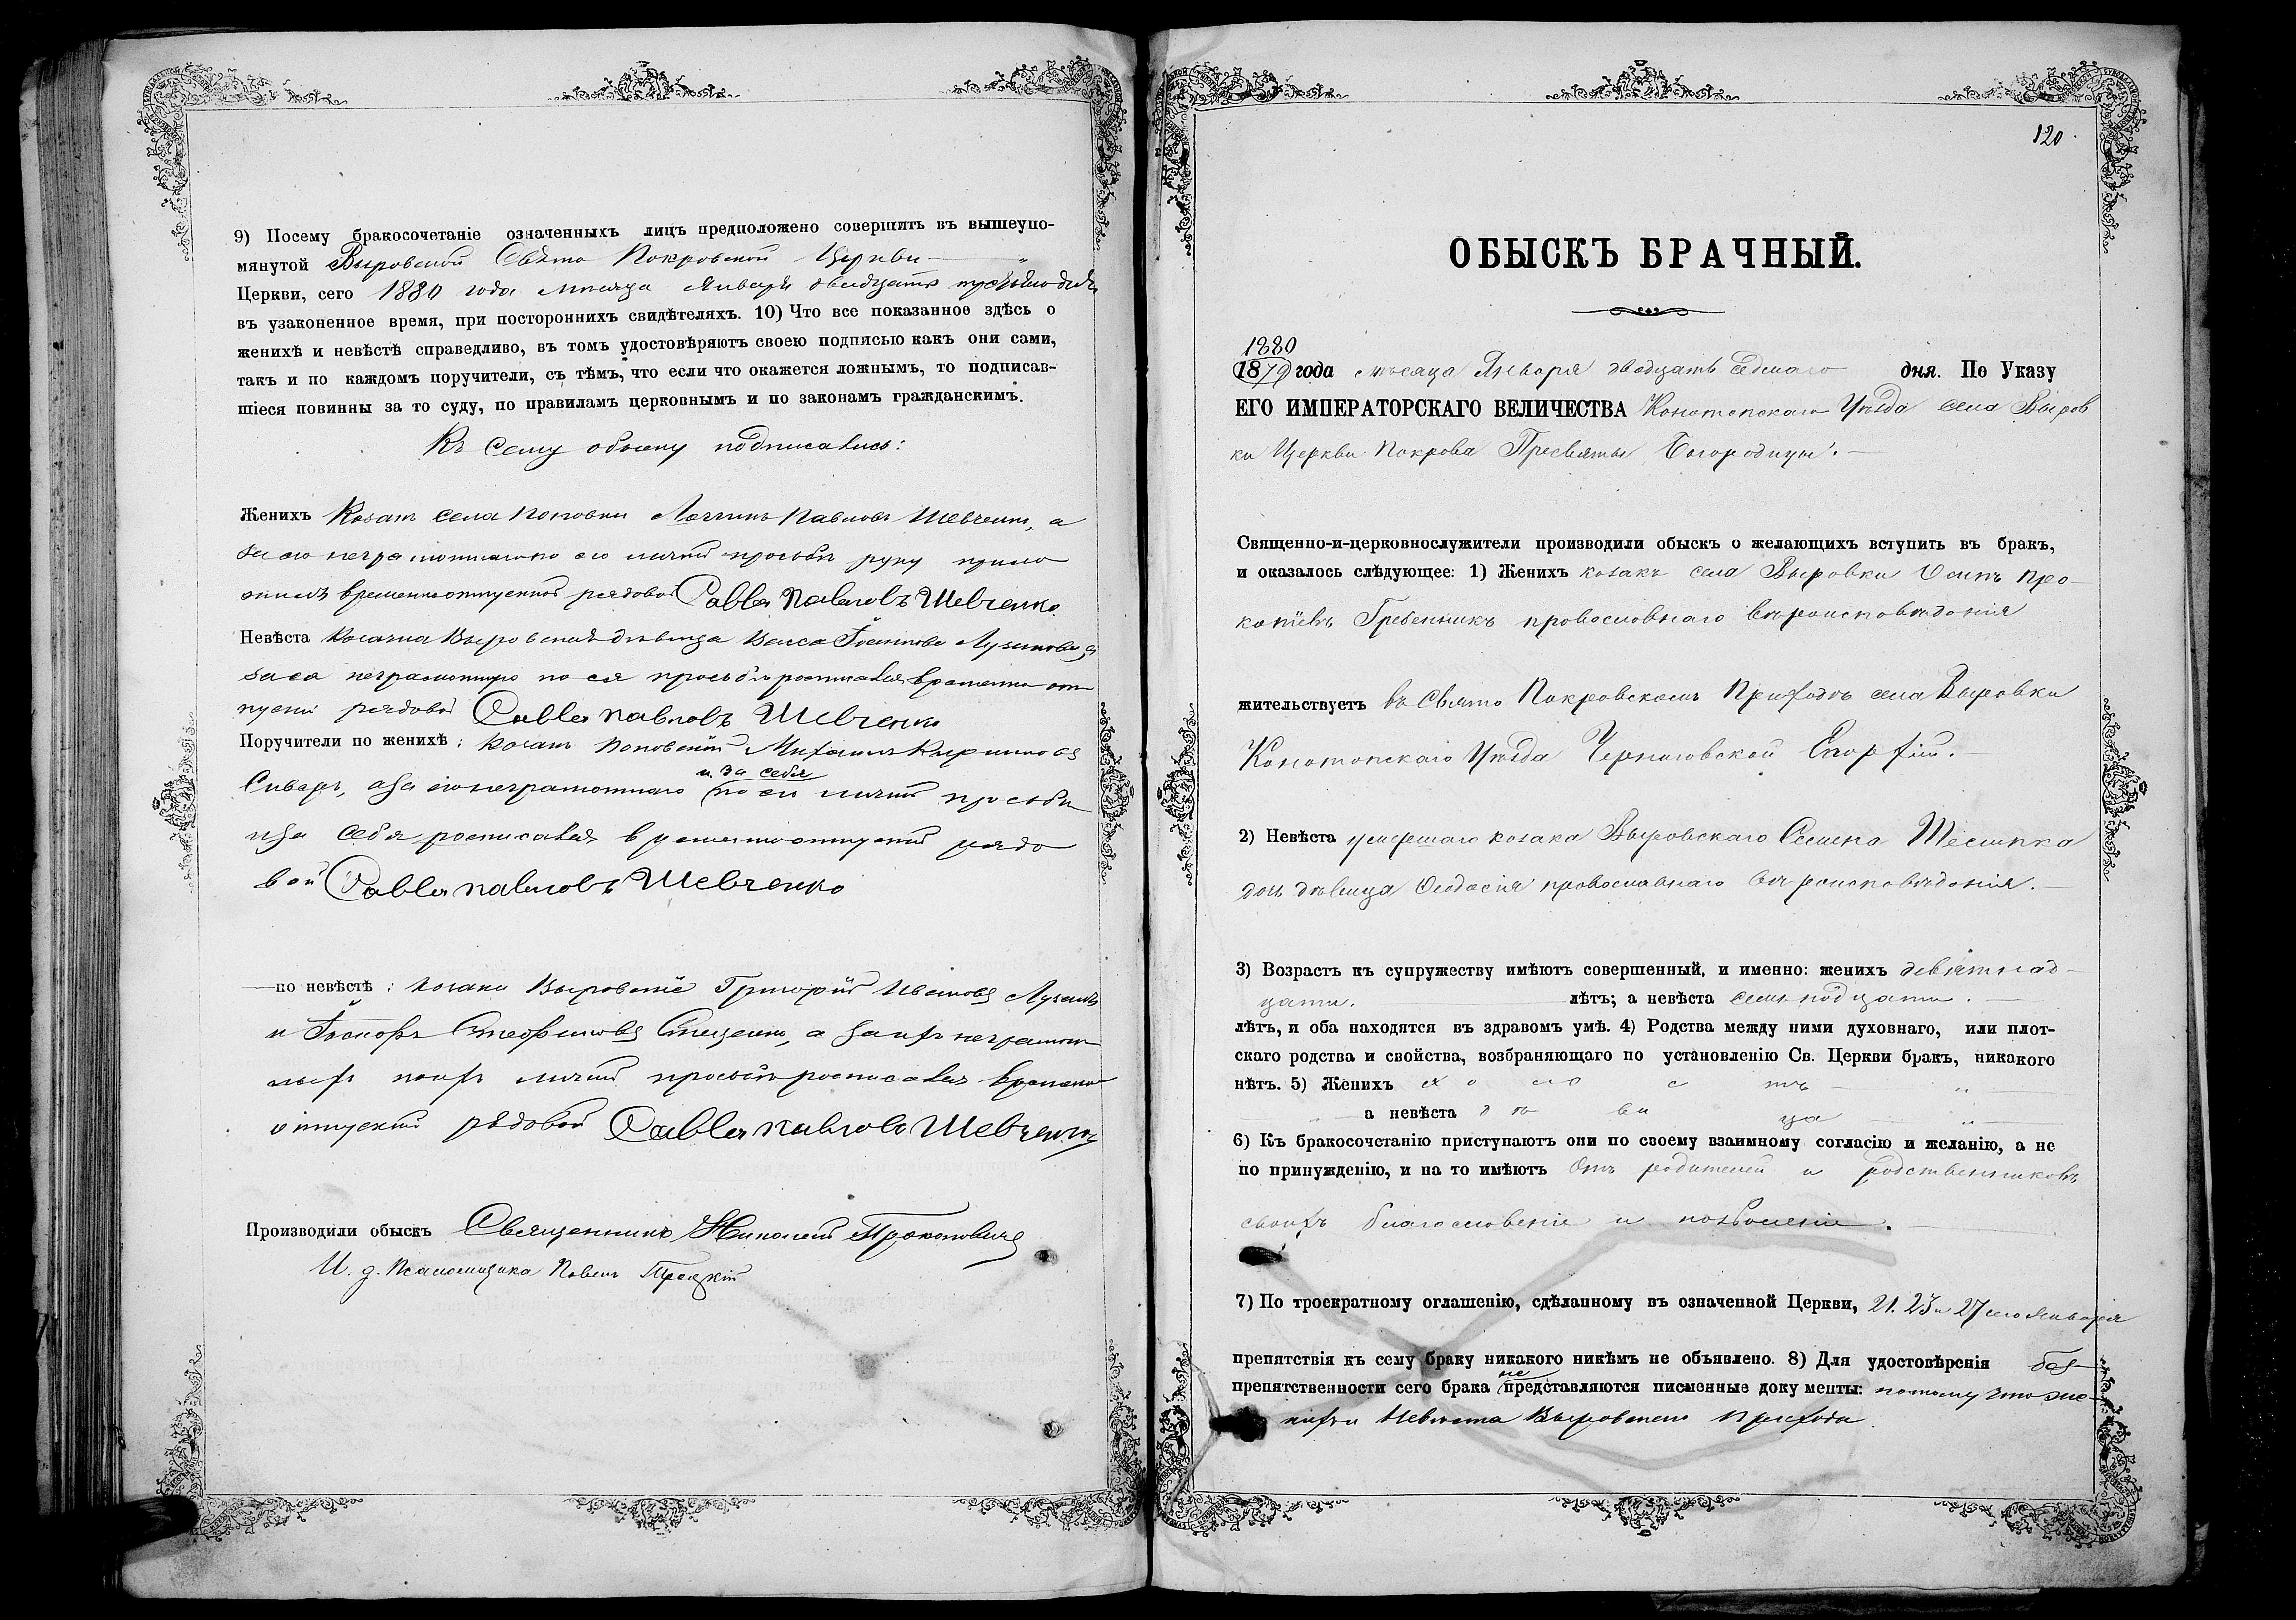 9) Посему бракосочетаніе означенныхъ лицъ предположено совершить въ вышеупо-
мянутой Выровской Свято Покровской Церкви
Церкви, сего 1880 года месяца Января двадцать
въ узаконенное время, при постороннихъ свидѣтеляхъ. 10) Что все показанное здѣсь о
женихѣ и невѣстѣ справедливо, въ томъ удостовѣряютъ своею подписью какъ они сами,
такъ и по каждомъ поручители, съ тѣмъ, что если что окажется ложнымъ, то подписав-
шіеся повинны за то суду, по правиламъ церковнымъ и по законамъ гражданскимъ.
Къ сему обыску подписались:
Женихъ Козакъ села Поповки Павловъ Шевченко, а
за его неграмотнаго по его личной просьбѣ руку прило
жилъ временноотпускной рядовой Савва Павловъ Шевченко
Невѣста Козачка Выровская дѣвица Васса
за ея неграмотную по ея просьбѣ росписался временно от
пускн рядовой Савва Павловъ Шевченко
Поручители по женихѣ: козакъ Поповскій Михаилъ Кириловъ
Сиваръ, а за его неграмотнаго по его личной просьбѣ
и за себя
и за себя росписался временноотпускной рядо
вой Савва Павловъ Шевченко
по невѣстѣ: козаки Выровскіе Григорій Ивановъ
и Стефановъ Стеценко, а за ихъ неграмот
ныхъ по ихъ личной просьбѣ росписался временно
отпускной рядовой Савва Павловъ Шевченко
Производили обыскъ Священникъ Николай Прокоповичъ
И. д. Псаломщика Павелъ Троцкій
120
ОБЫСКЪ БРАЧНЫЙ.
1880
1879 года мѣсяца Января двадцать седмаго дня. По Указу
ЕГО ИМПЕРАТОРСКАГО ВЕЛИЧЕСТВА Конотопскаго Уѣзда села Выров
ки Церкви Покрова Пресвятыя Богородицы.
Священно-и-церковнослужители производили обыскъ о желающихъ вступить въ бракъ,
и оказалось слѣдующее: 1) Женихъ козакъ села Выровки Осипъ Про-
копіевъ Гребенникъ провославнаго вѣроисповѣданія
жительствуетъ въ Свято Покровскомъ Приходѣ села Выровки
Конотопскаго Уѣзда Черниговской Епархіи.
2) Невѣста умершаго козака Выровскаго Семена
дочь дѣвица Феодосія провославнаго вѣроисповѣданія.
3) Возрастъ къ супружеству имѣютъ совершенный, и именно: женихъ девятнад-
цати. лѣтъ; а невѣста семьнадцати.
лѣтъ, и оба находятся въ здравомъ умѣ. 4) Родства между ними духовнаго, или плот-
скаго родства и свойства, возбраняющаго по установленію Св. Церкви бракъ, никакого
нѣтъ. 5) Женихъ холостъ
а невѣста дѣвица
6) Къ бракосочетанію приступаютъ они по своему взаимному согласію и желанію, а не
по принужденію, и на то имѣютъ отъ родителей и родственниковъ
своихъ благословеніе и позволеніе.
7) По троекратному оглашенію, сдѣланному въ означенной Церкви, 21. 23 и 27 сего Января
препятствія къ сему браку никакого никѣмъ не объявлено. 8) Для удостовѣренія без-
препятственности сего брака не представляются писменные документы: потому что же-
нихъ и Невѣста Выровскаго Прихода